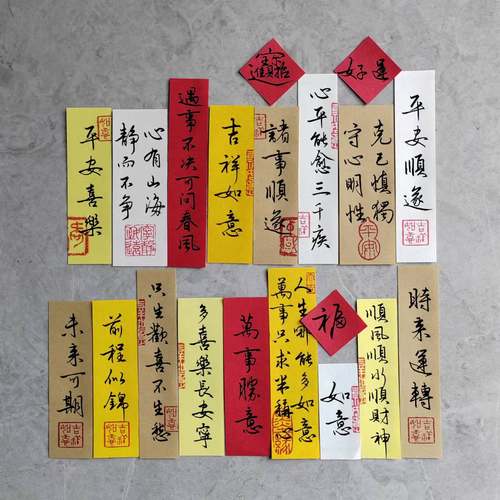 招財進寶
好運
平安喜樂
心有山海
静而不争
遇事不决可问春風
吉祥如意
諸事順遂
心平能愈三千疾
克己慎獨
守心明性
平安順遂
未来可期
前程似錦
只生歡喜不生愁
多喜樂長安寧
萬事勝意
人生哪能多如意
萬事只求半稱心
福
如意
順風順水順財神
時来運轉